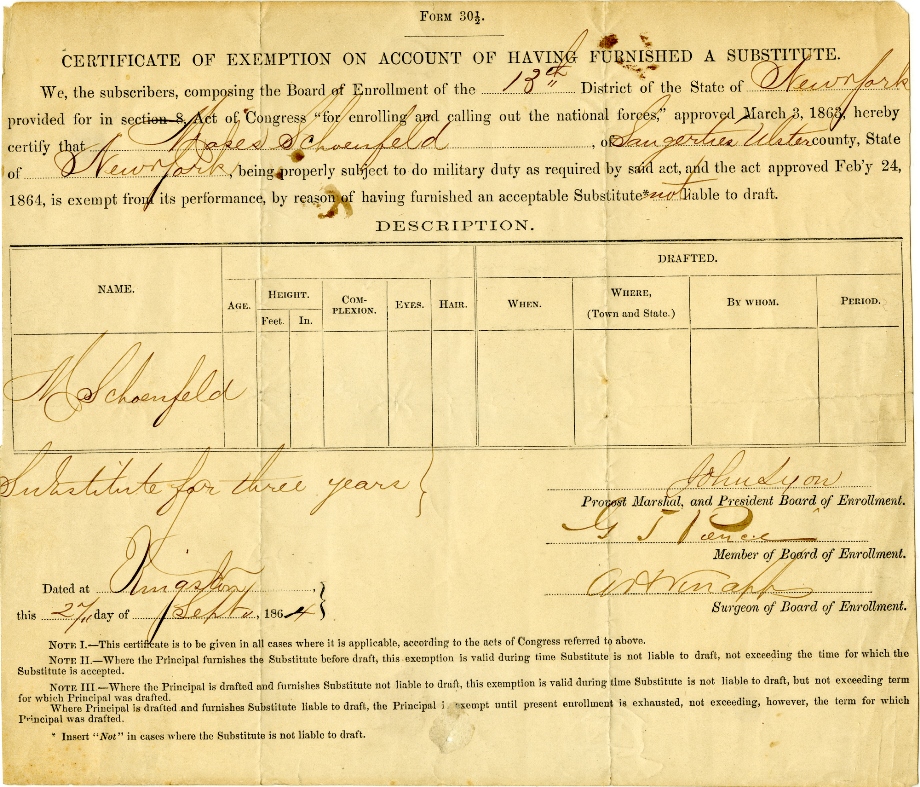 FORM 30½.
CERTIFICATE OF EXEMPTION ON ACCOUNT OF HAVING FURNISHED A SUBSTITUTE.
We, the subscribers, composing the Board of Enrollment of the 13th District of the State of New York
provided for in section 8, Act of Congress "for enrolling and calling out the national forces," approved March 3, 1863, hereby
certify that Moses Schoenfeld, of Saugerties Ulster county, State
of New York, being properly subject to do military duty as required by said act, and the act approved Feb'y 24,
1864, is exempt from its performance, by reason of having furnished an acceptable Substitute *not liable to draft.
DESCRIPTION.
NAME. AGE. HEIGHT. Feet. In. COMPLEXION. EYES. HAIR. DRAFTED. WHEN. WHERE, (Town and State.) BY WHOM. PERIOD.
M Schoenfeld
Substitute for three years }
John Lyon
Provost Marshal, and President Board of Enrollment.
G T Pierce
Member of Board of Enrollment.
Knapp
Surgeon of Board of Enrollment.
Dated at Kingston
this 27 day of Sept, 1864 }
NOTE I.—This certificate is to be given in all cases where it is applicable, according to the acts of Congress referred to above.
NOTE II.—Where the Principal furnishes the Substitute before draft, this exemption is valid during time Substitute is not liable to draft, not exceeding the time for which the
Substitute is accepted.
NOTE III.—Where the Principal is drafted and furnishes Substitute not liable to draft, this exemption is valid during time Substitute is not liable to draft, but not exceeding term
for which Principal was drafted.
Where Principal is drafted and furnishes Substitute liable to draft, the Principal is exempt until present enrollment is exhausted, not exceeding, however, the term for which
Principal was drafted.
* Insert "Not" in cases where the Substitute is not liable to draft.